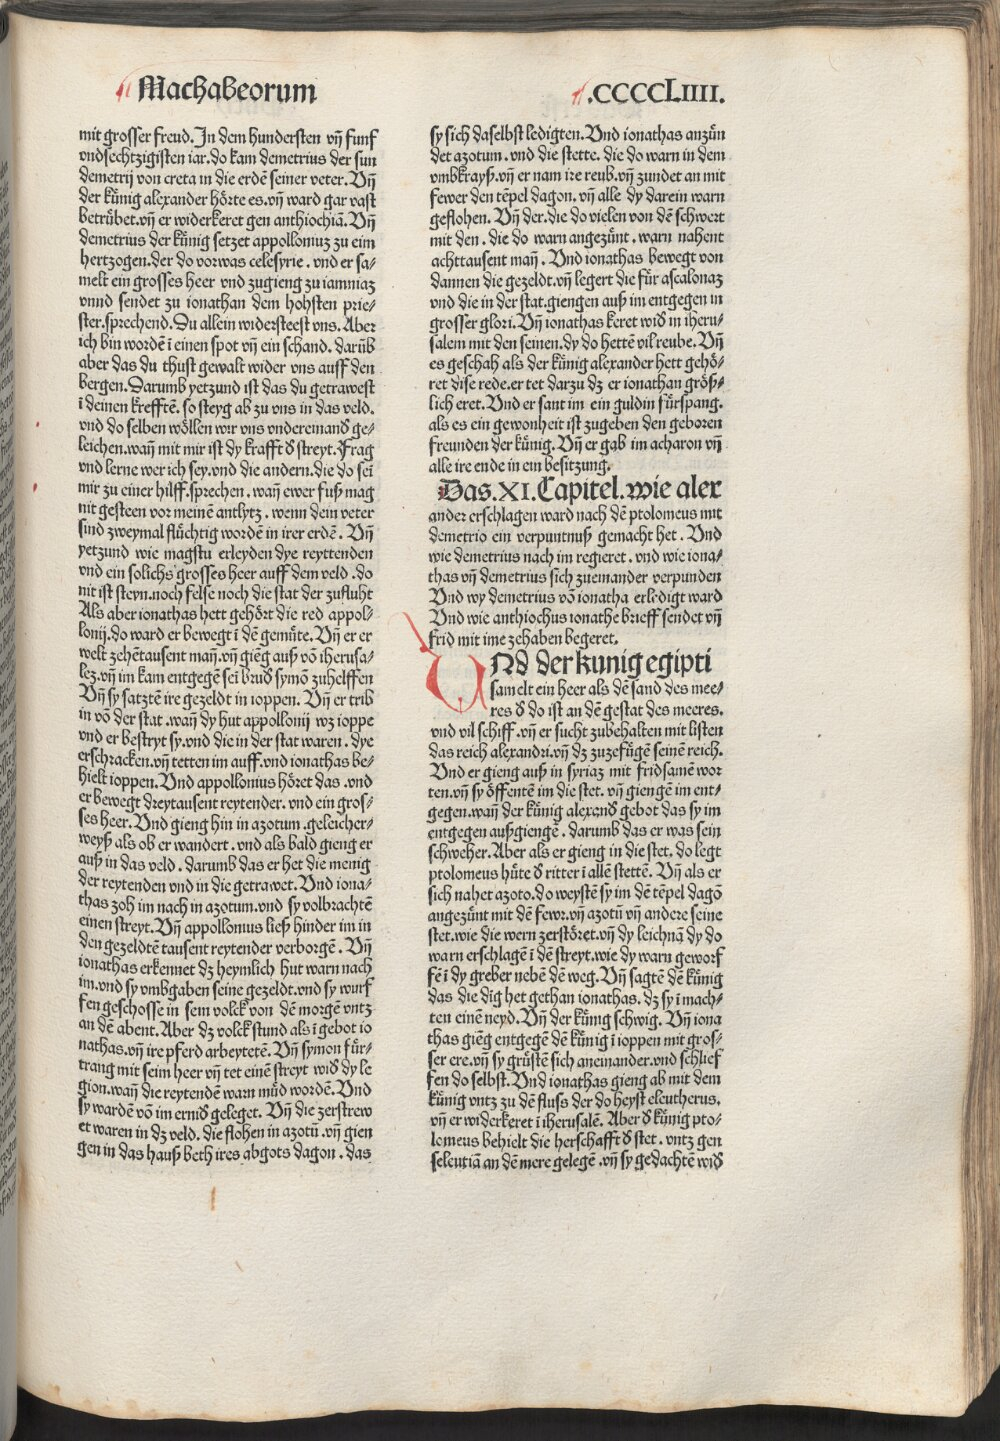 Machabeorum
.CCCCLIIII.
mit grosser freud. In dem hundersten vñ funf
vndsechtzigisten iar. do kam demetrius der sun
demetrij von creta in die erdē seiner veter. Vñ
der kúnig alexander hórte es. vñ ward gar vast
betrúbet. vñ er widerkeret gen anthiochiā. Vñ
demetrius der kúnig setzet appolloniuz zu eim
hertzogen. der do vorwas celesyrie. vnd er sa⸗
melt ein grosses heer vnd zugieng zu iamniaz
vnnd sendet zu ionathan dem hohsten prie⸗
ster. sprechend. Du allein widersteest vns. Aber
ich bin wordē ī einen spot vñ ein schand. darūb
aber das du thust gewalt wider vns auff den
bergen. Darumb yetzund ist das du getrawest
ī deinen krefftē. so steyg ab zu vns in das veld.
vnd do selben wóllen wir vns vndereinand ge⸗
leichen. wañ mit mir ist dy krafft đ streyt. Frag
vnd lerne wer ich sey. vnd die andern. die do sei
mir zu einer hilff. sprechen. wañ ewer fuß mag
nit gesteen vor meinē antlytz. wenn dein veter
sind zweymal flúchtig wordē in irer erdē. Vñ
yetzund wie magstu erleyden dye reyttenden
vnd ein solichs grosses heer auff dem veld. do
nit ist steyn. noch felse noch die stat der zufluht
Als aber ionathas hett gehórt die red appol⸗
lonij. do ward er bewegt ī dē gemúte. Vñ er er
welt zehētausent mañ. vñ giēg auß vō iherusa⸗
lez. vñ im kam entgegē sei bruđ symō zuhelffen
Vñ sy satztē ire gezeldt in ioppen. Vñ er trib
in vō der stat. wañ dy hut appollonij wz ioppe
vnd er bestryt sy. vnd die in der stat waren. dye
erschracken. vñ tetten im auff. vnd ionathas be⸗
hielt ioppen. Vnd appollonius hóret das. vnd
er bewegt dreytausent reytender. vnd ein gros⸗
ses heer. Vnd gieng hin in azotum. geleicher⸗
weyß als ob er wandert. vnd als bald gieng er
auß in das veld. darumb das er het die menig
der reytenden vnd in die getrawet. Vnd iona⸗
thas zoh im nach in azotum. vnd sy volbrachtē
einen streyt. Vñ appollonius ließ hinder im in
den gezeldtē tausent reytender verborgē. Vñ
ionathas erkennet dz heymlich hut warn nach
im. vnd sy vmbgaben seine gezeldt. vnd sy wurf
fen geschosse in sem volck von dē morgē vntz
an dē abent. Aber dz volck stund als ī gebot io
nathas. vñ ire pferd arbeytetē. Vñ symon fúr⸗
trang mit seim heer vñ tet einē streyt wiđ dy le
gion. wañ die reytendē warn múd wordē. Vnd
sy wardē vō im erniđ geleget. Vñ die zerstrew
et waren in dz veld. die flohen in azotū. vñ gien
gen in das hauß beth ires abgots dagon. das
sy sich daselbst ledigten. Vnd ionathas anzún
det azotum. vnd die stette. die do warn in dem
vmbkrayß. vñ er nam ire reub. vñ zundet an mit
fewer den tēpel dagon. vñ alle dy darein warn
geflohen. Vñ der. die do vielen von dē schwert
mit den. die do warn angezúnt. warn nahent
achttausent mañ. Vnd ionathas bewegt von
dannen die gezeldt. vñ legert die fúr ascalonaz
vnd die in der stat. giengen auß im entgegen in
grosser glori. Vñ ionathas keret wiđ in iheru⸗
salem mit den seinen. dy do hettē vil reube. Vñ
es geschah als der kúnig alexander hett gehó⸗
ret dise rede. er tet darzu dz er ionathan gróß⸗
lich eret. Vnd er sant im ein guldin fúrspang.
als es ein gewonheit ist zugeben den geboren
freunden der kúnig. Vñ er gab im acharon vñ
alle ire ende in ein besitzung.
Das. XI. Capitel. wie alex
ander erschlagen ward nach dē ptolomeus mit
demetrio ein verpuntnuß gemacht het. Vnd
wie demetrius nach im regieret. vnd wie iona⸗
thas vñ demetrius sich zueinander verpunden
Vnd wy demetrius vō ionatha erledigt ward
Vnd wie anthiochus ionathe brieff sendet vñ
frid mit ime zehaben begeret.
VNd der kunig egipti
samelt ein heer als dē sand des mee⸗
res đ do ist an dē gestat des meeres.
vnd vil schiff. vñ er sucht zubehalten mit listen
das reich alexandri. vñ dz zuzefúgē seinē reich.
Vnd er gieng auß in syriaz mit fridsamē wor
ten. vñ sy óffentē im die stet. vñ giengē im ent⸗
gegen. wañ der kúnig alexanđ gebot das sy im
entgegen außgiengē. darumb das er was sein
schweher. Aber als er gieng in die stet. do legt
ptolomeus húte đ ritter ī allē stettē. Vñ als er
sich nahet azoto. do weystē sy im dē tēpel dagō
angezúnt mit dē fewr. vñ azotū vñ andere seine
stet. wie die wern zerstóret. vñ dy leichnā dy do
warn erschlagē ī dē streyt. wie dy warn geworf
fē ī dy greber nebē dē weg. Vñ sagtē dē kúnig
das die dīg het gethan ionathas. dz sy ī mach⸗
ten einē neyd. Vñ der kúnig schwig. Vñ iona
thas giēg entgegē dē kúnig ī ioppen mit gros⸗
ser ere. vñ sy grústē sich aneinander. vnd schlief
fen do selbst. Vnd ionathas gieng ab mit dem
kúnig vntz zu dē fluss der do heyst eleutherus.
vñ er widerkeret ī iherusalē. Aber đ kúnig pto⸗
lomeus behielt die herschafft đ stet. vntz gen
seleutiā an dē mere gelegē. vñ sy gedachtē wiđ